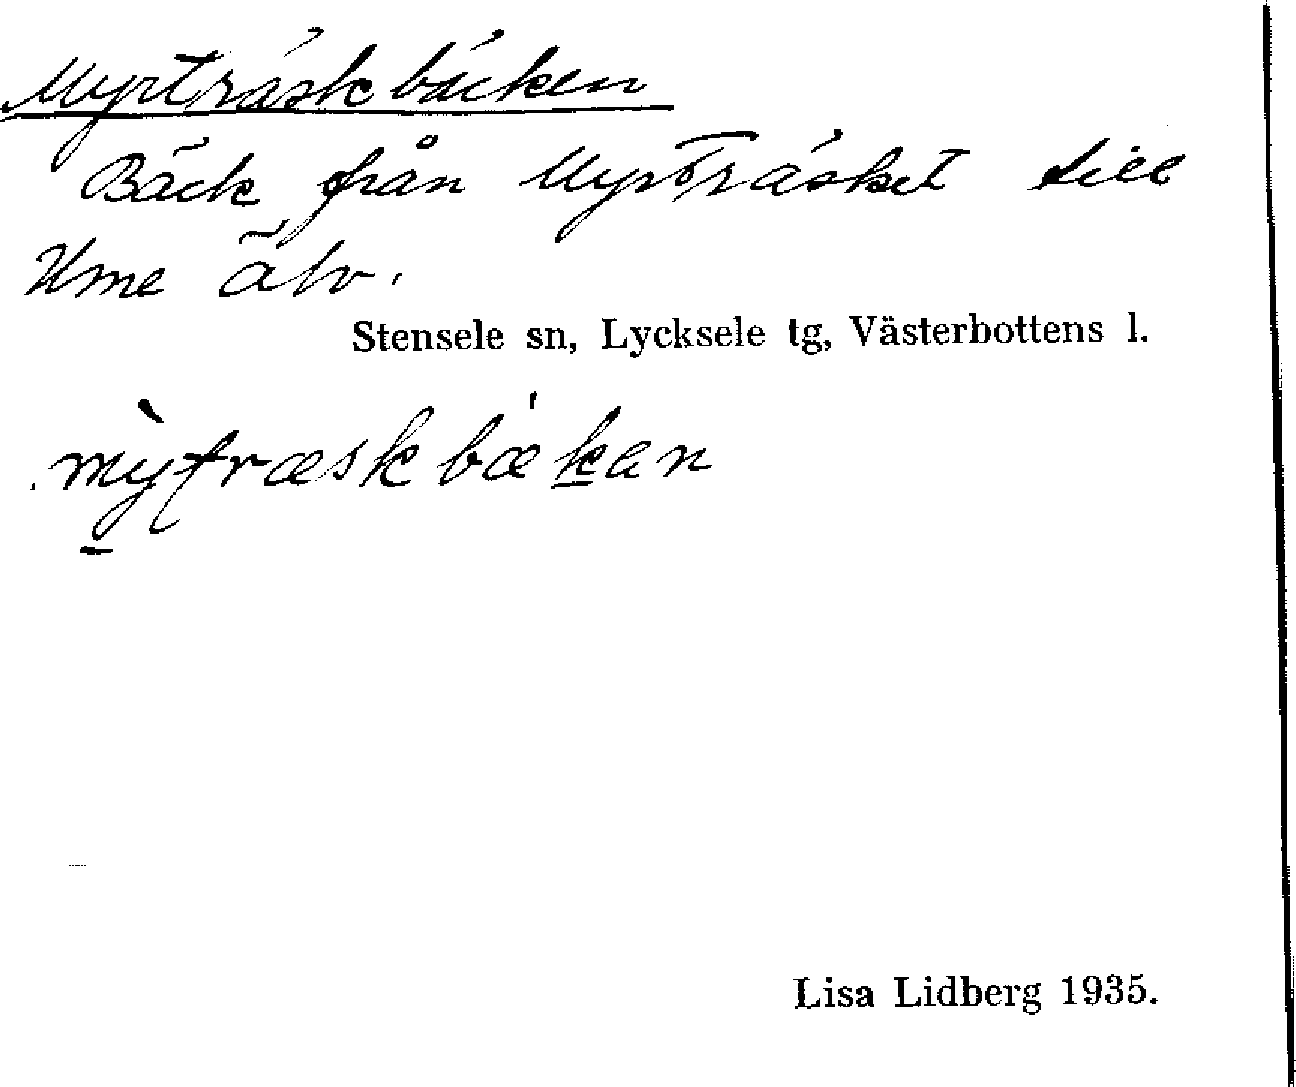 Myrträskbäcken
Bäck från Myrträsket till
Ume älv.
Stensele sn, Lycksele tg, Västerbottens l.
mỳtræskbæ'kan
Lisa Lidberg 1935.